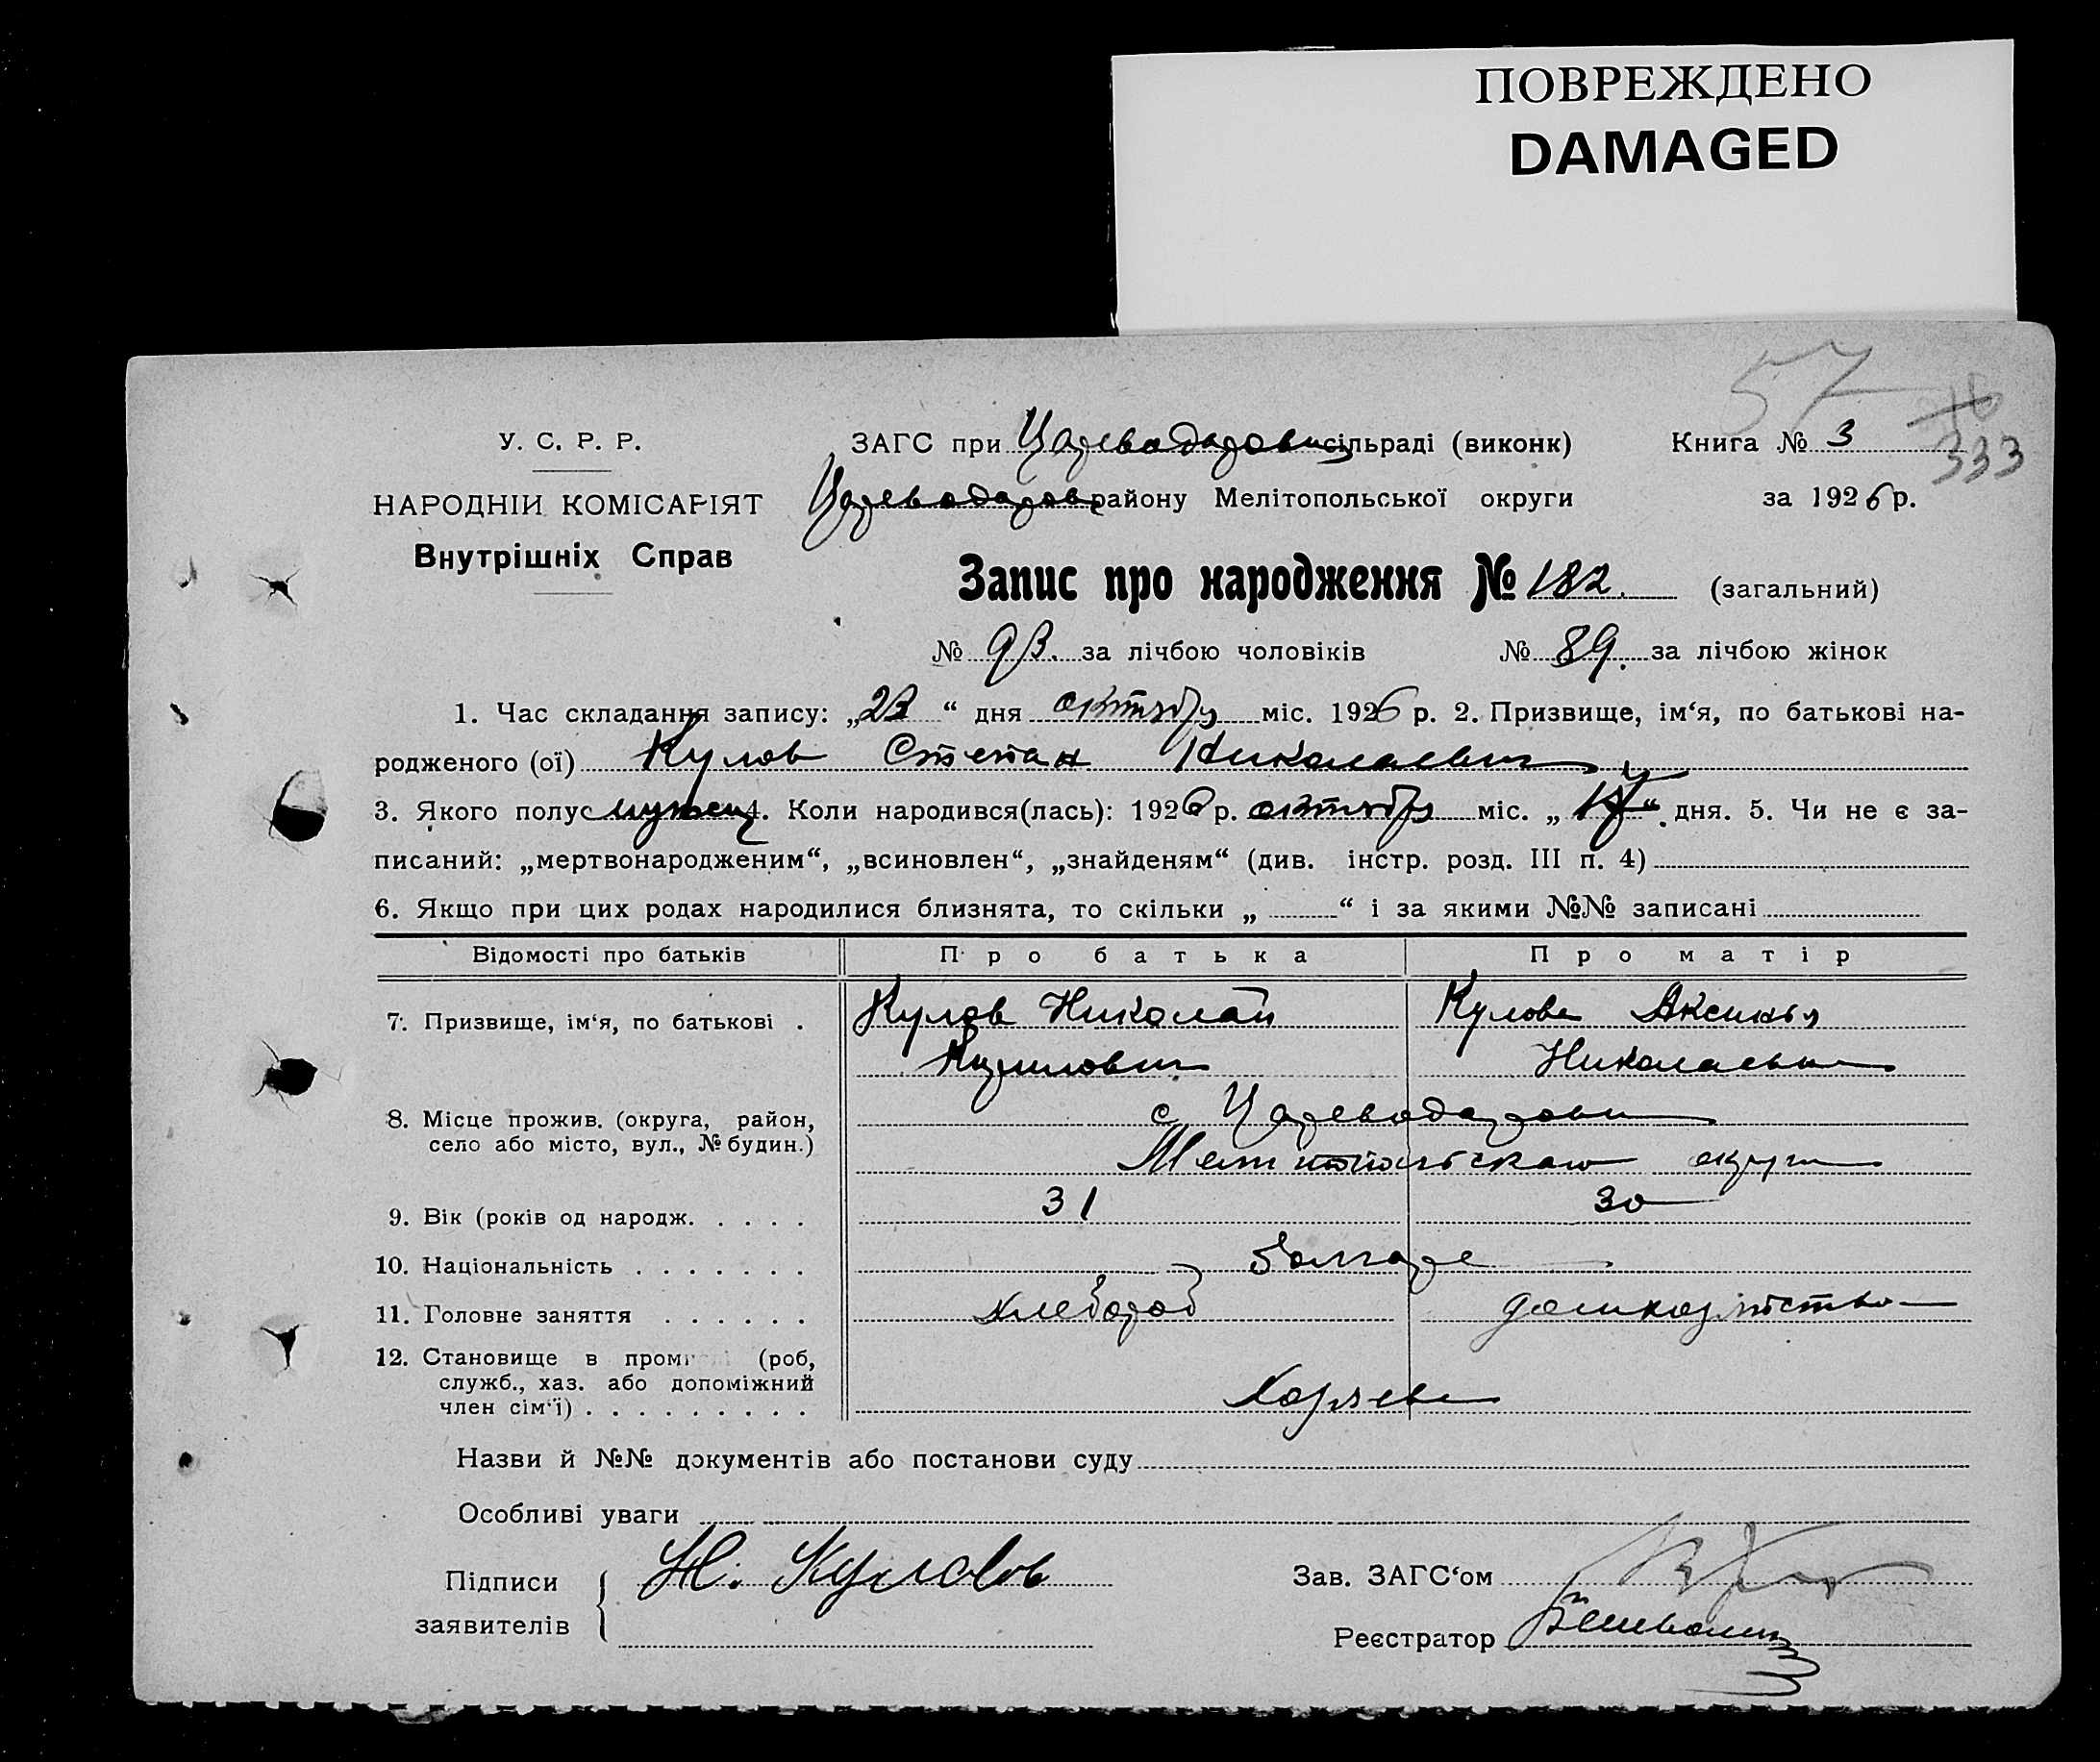 ПОВРЕЖДЕНО
DAMAGED
57
333
У. С. Р. Р.
ЗАГС при Цареводаровк сільраді (виконк)
Книга № 3
НАРОДНІЙ КОМІСАРІЯТ
Цареводаров району Мелітопольської округи
за 1926 р.
Внутрішніх Справ
Запис про народження № 182. (загальний)
№ 93. за лічбою чоловіків № 89. за лічбою жінок
1. Час складання запису: „23“ дня октября міс. 1926 р. 2. Призвище, ім‘я, по батькові на-
родженого (ої) Кулов Степан Николаевич
3. Якого полу 4. Коли народився(лась): 1926 р. октября міс. „ “ дня. 5. Чи не є за-
писаний: „мертвонародженим“, „всиновлен“, „знайденям“ (див. інстр. розд. III п. 4)
6. Якщо при цих родах народилися близнята, то скільки „ “ і за якими №№ записані
Відомості про батьків Про батька Про матір
7. Призвище, ім‘я, по батькові . Кулов Николай Кулова Аксинья
Николаевна
8. Місце прожив. (округа, район, с Цареводаровки
село або місто, вул., № будин.) Мелитопольского округа
9. Вік (років од народж. . . . . 31 30
10. Національність . . . . . . . болгаре
11. Головне заняття . . . . . . хлебороб домхозяйство
12. Становище в пром (роб,
служб., хаз. або допоміжний
член сім‘ї) . . . . . . . . . Хозяева
Назви й №№ документів або постанови суду
Особливі уваги
Підписи Н. Кулов
Зав. ЗАГС‘ом
заявителів
Реєстратор